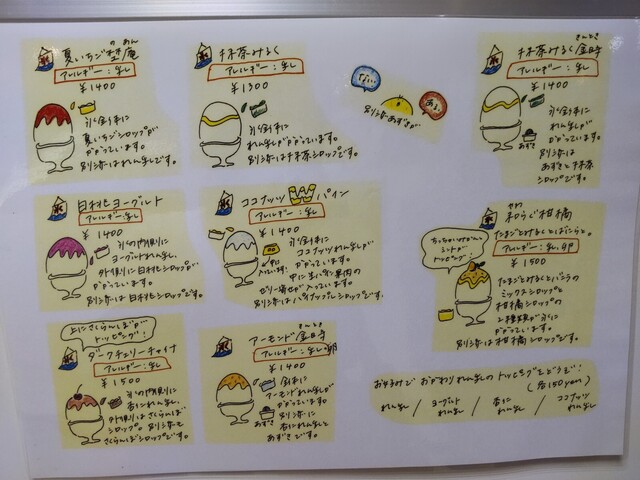 夏いちご埜庵
アレルギー：乳
¥1400
氷全体に
夏いちごシロップが
かかっています。
別添はれん乳です。
抹茶みるく
アレルギー：乳
¥1300
氷全体に
れん乳がかかっています。
別添は抹茶シロップです。
別添あずきが
ある。
抹茶みるく金時
きんとき
アレルギー：乳
¥1400
氷全体に
れん乳が
かかっています。
別添は
あずきと抹茶
シロップです。
あずき
白桃ヨーグルト
アレルギー：乳
¥1400
氷の内側に
ヨーグルトれん乳、
外側に白桃シロップが
かかっています。
別添は白桃シロップです。
ココナッツWパイン
アレルギー：乳
¥1400
氷全体に
ココナッツれん乳が
かかっています。
中にパイン果肉の
ゼリー寄せが入っています。
別添はパイナップルシロップです。
和らぐ柑橘
やわ
たまごとみるくとばにらと。
アレルギー：乳、卵
¥1500
トッピング！
たまごとみるくとバニラの
ミックスシロップと
柑橘シロップの
2種類が氷に
かかっています。
別添は柑橘シロップです。
上にさくらんぼが
トッピング！
ダークチェリーチャイナ
アレルギー：乳
¥1500
氷の内側に
杏仁れん乳、
外側はさくらんぼ
シロップ。別添も
さくらんぼシロップです。
アーモンド金時
きんとき
アレルギー：乳、卵
¥1400
全体に
アーモンドれん乳が
かかっています。
別添に
杏仁れん乳と
あずきです。
あずき
お好みで おかわりれん乳の トッピングをどうぞ！
(各150yen)
れん乳 / ヨーグルトれん乳 / 杏仁れん乳 / ココナッツれん乳